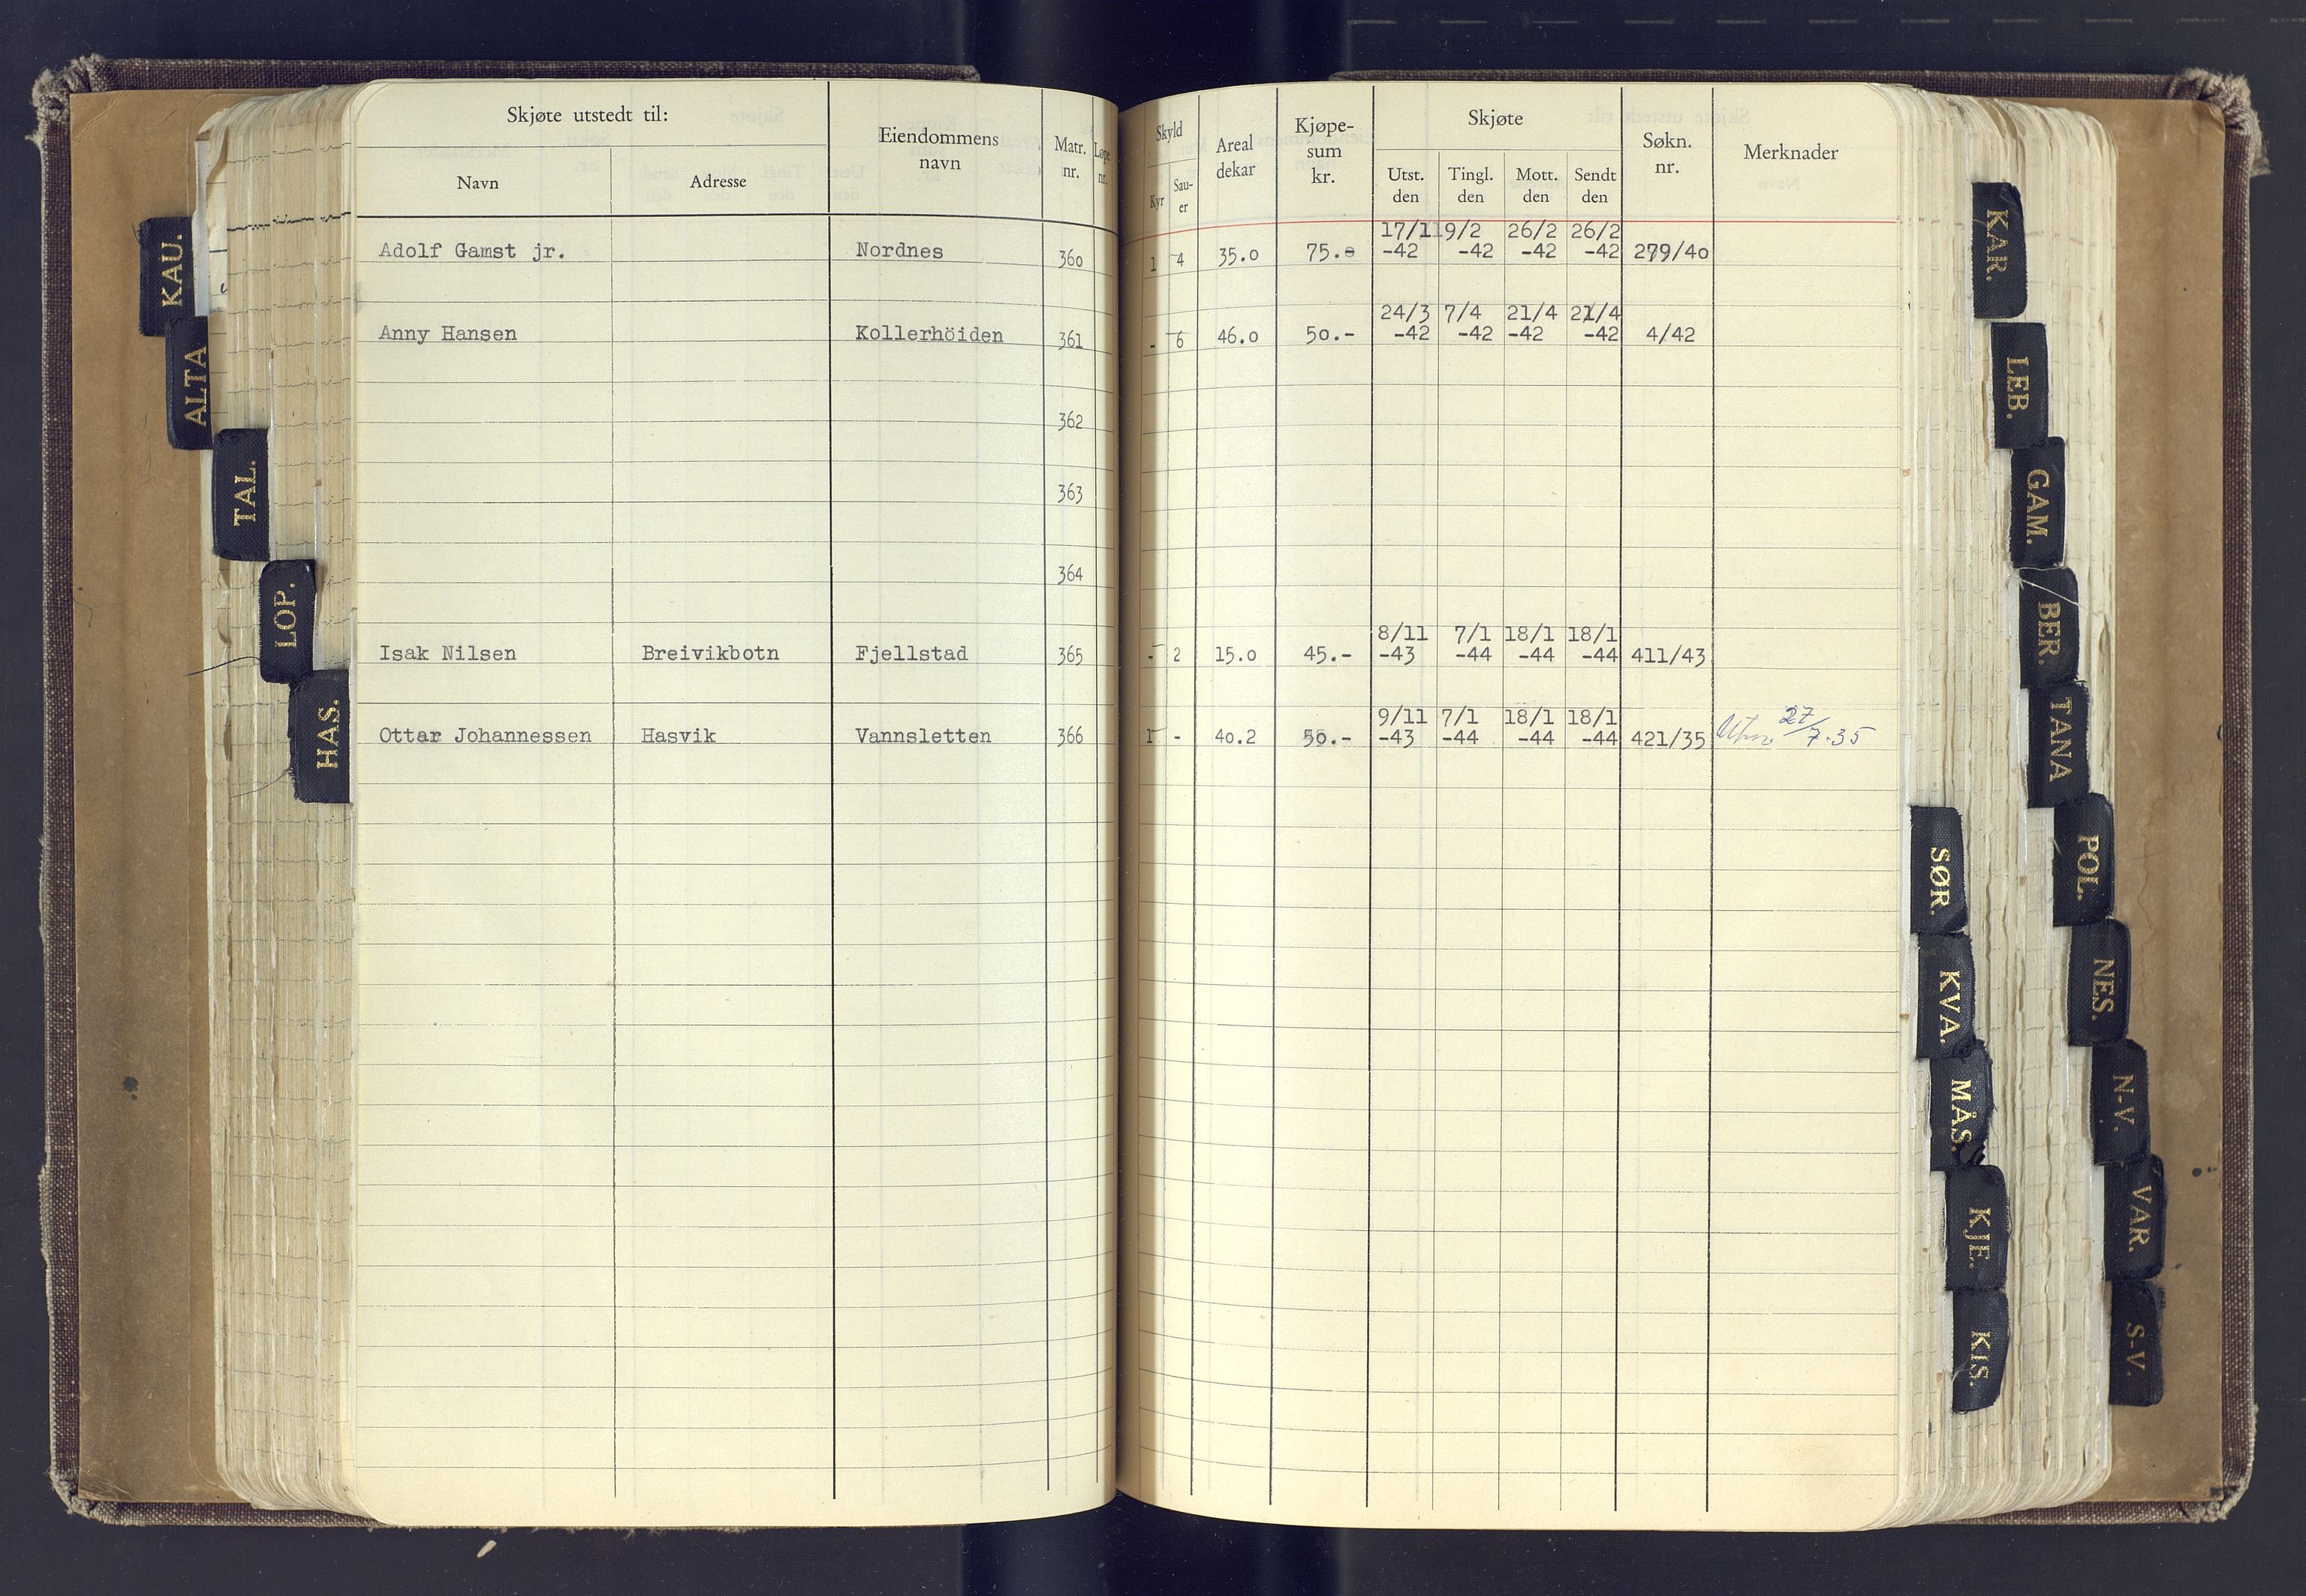 Skjøte utstedt til:
Navn
Adresse
Eiendommens
navn
Matr.
nr.
Løpe
nr.
Skyld
Kyr
Sau-
er
Areal
dekar
Kjøpe-
sum
kr.
Skjøte
Utst.
den
Tingl.
den
Mott.
den
Sendt
den
Søkn.
nr.
Merknader
17/1 19/2 26/2 26/2
Adolf Gamst jr. Nordnes 360 1 4 35.0 75.- -42 -42 -42 -42 279/40
24/3 7/4 21/4 21/4
Anny Hansen Kollerhöiden 361 - 6 46.0 50.- -42 -42 -42 -42 4/42
362
363
364
8/11 7/1 18/1 18/1
Isak Nilsen Breivikbotn Fjellstad 365 - 2 15.0 45.- -43 -44 -44 -44 411/43
9/11 7/1 18/1 18/1 27/
Ottar Johannessen Hasvik Vannsletten 366 1 - 40.2 50.- -43 -44 -44 -44 421/35 7-35
KAU.
ALTA
TAL.
LOP.
HAS.
KAR.
LEB.
GAM.
BER.
TANA
POL.
NES.
N-V.
VAR.
S-V.
SØR.
KVA.
MÅS.
KJE.
KIS.